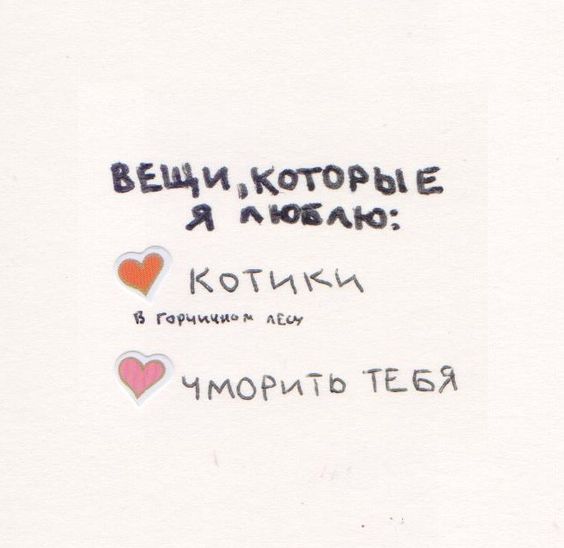 ВЕЩИ, КОТОРЫЕ
Я ЛЮБЛЮ:
КОТИКИ
В ГОРЧИЧНОМ ЛЕСУ
ЧМОРИТЬ ТЕБЯ